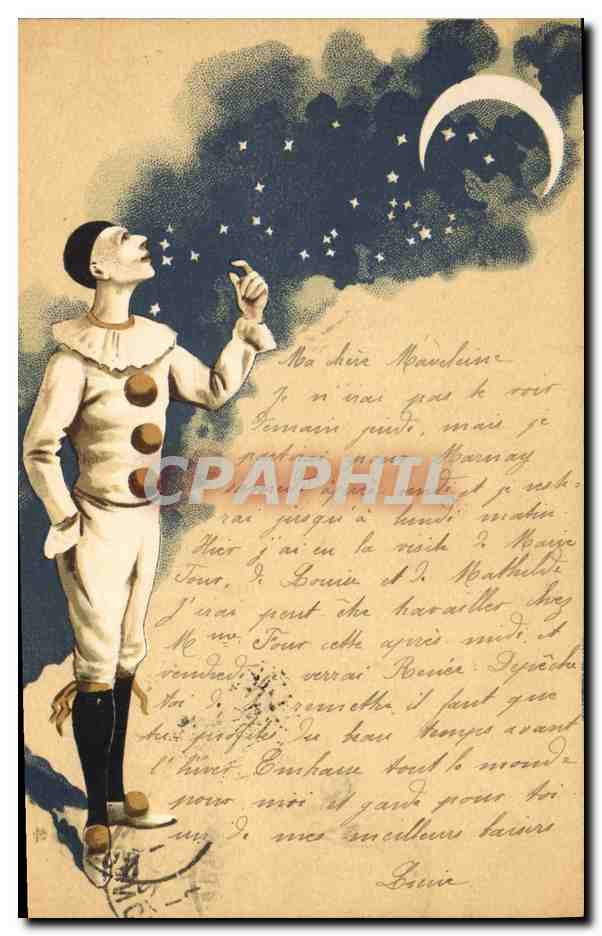 Ma chère Madeleine
Je n'irai pas te voir
Demain jeudi, mais je
partirai pour Marnay
CPAPHIL
après et je reste-
rai jusqu'à lundi matin.
Hier j'ai eu la visite de Marie
Four, de Louise et de Mathilde
J'irai peut être travailler chez
Mme Four cette après midi et
vendredi verrai Renée. Dépêche
toi de remettre il faut que
tu profites du beau temps avant
l'hiver. Embrasse tout le monde
pour moi et garde pour toi
un de mes meilleurs baisers